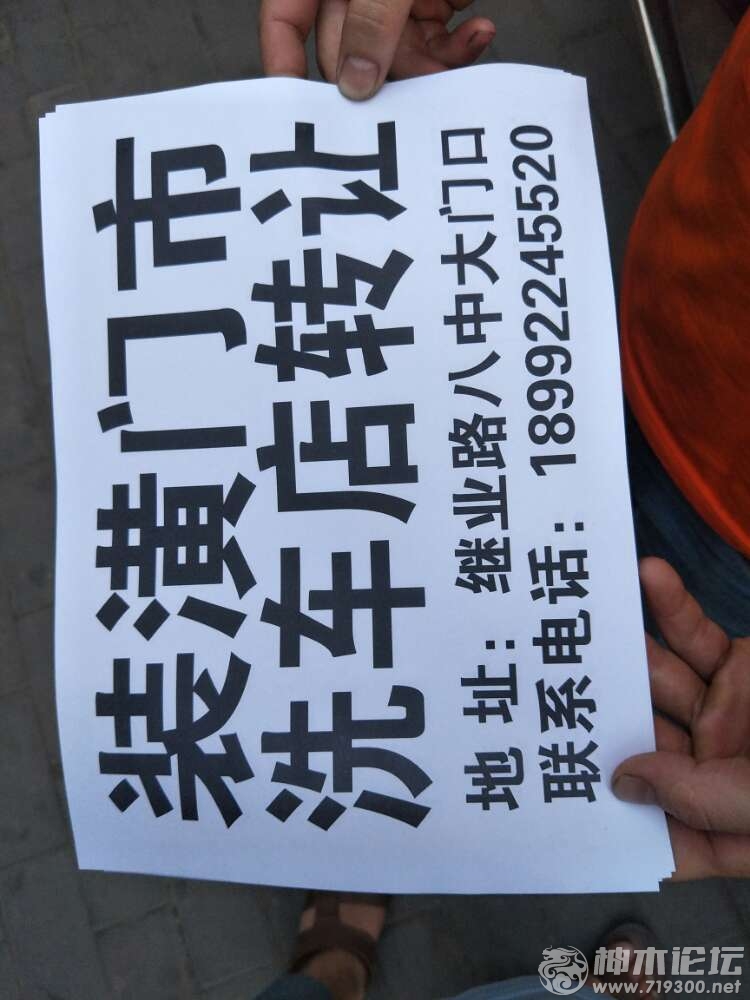 装潢门市
洗车店转让
地 址：继业路八中大门口
联系电话：18992245520
神木论坛
www.719300.net